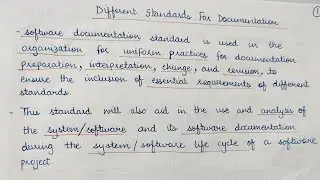 Different Standards For Documentation
①
- software documentation standard is used in the
organisation for uniform practices for documentation
preparation, interpretation, change, and revision, to
ensure the inclusion of essential requirements of different
standards.
- This standard will also aid in the use and analysis of
the system/software and its software documentation
during the system/software life cycle of a software
project.